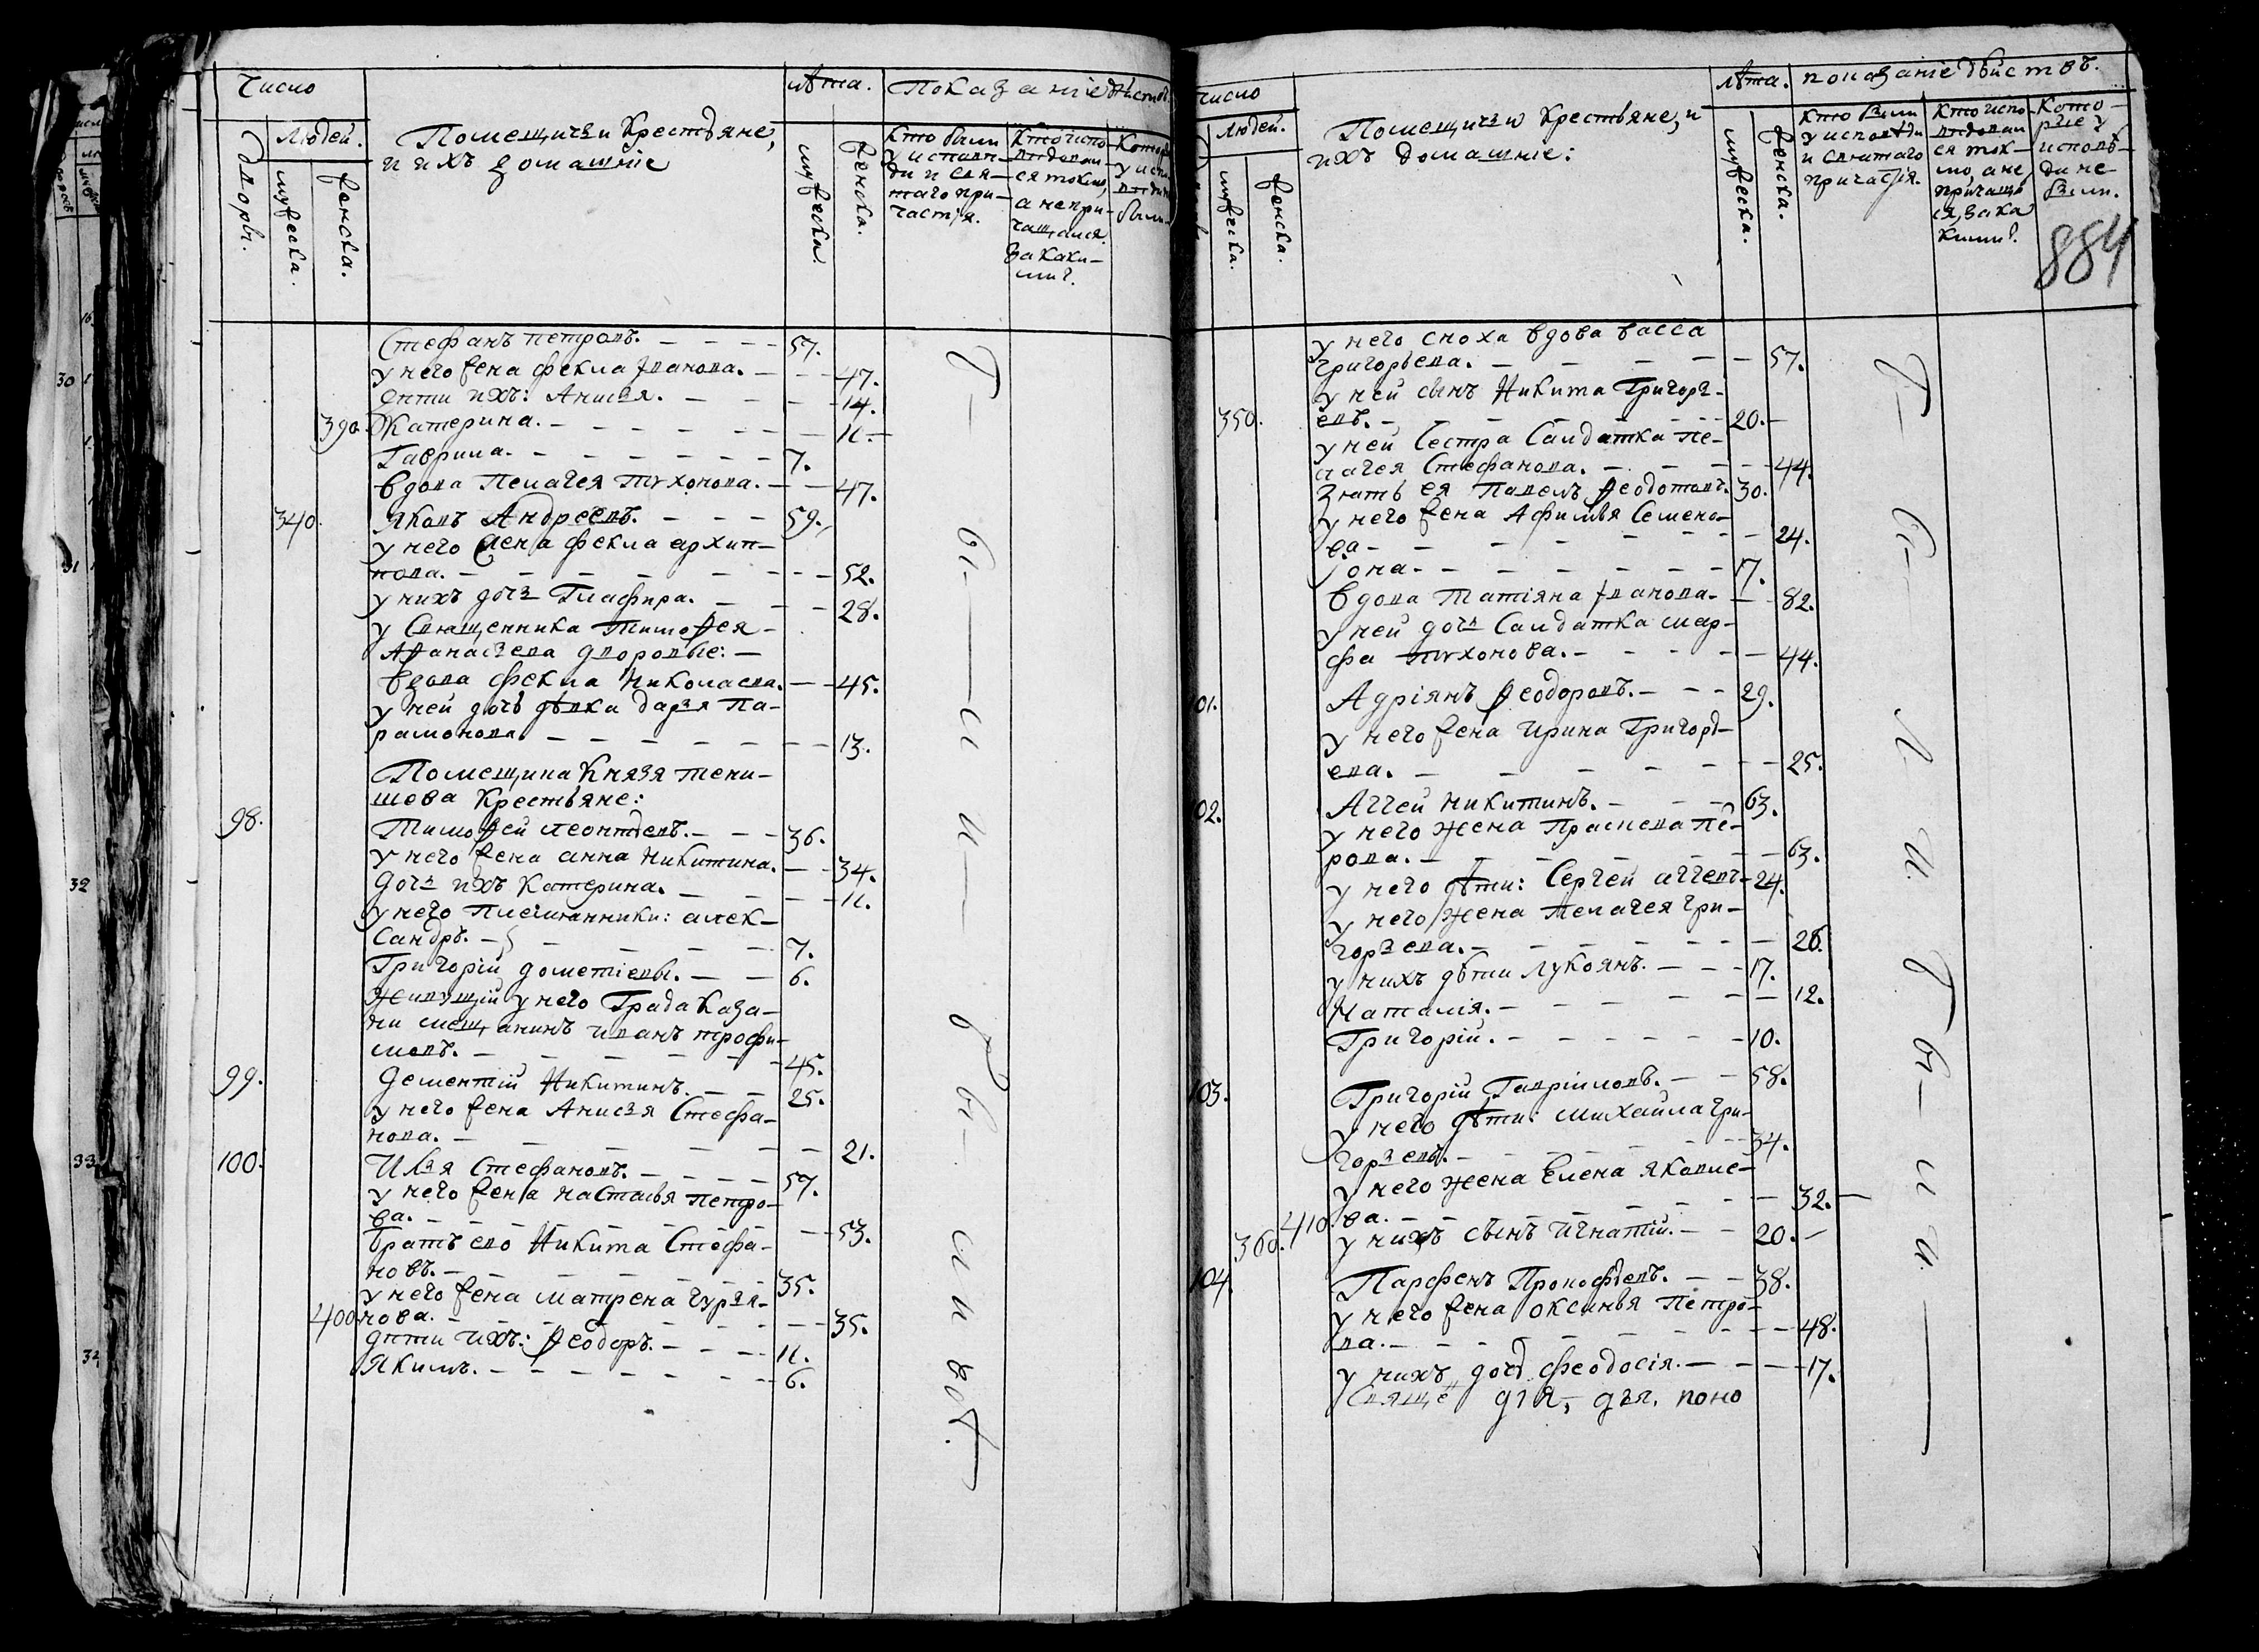 Число
Людей.
Дворы.
мужеска.
женска.
Помещичьи Крестьяне,
и ихъ домашніе
лѣта.
мужеска.
женска.
Показаніе дѣйствъ.
Кто были
у исповѣ-
ди и свя-
таго при-
частія.
Кто испо-
вѣдовал-
ся токмо,
а не при-
чащался.
За каки-
ми?
Стефанъ петровъ. 57.
у него жена фекла Іванова. 47.
дѣти ихъ: Анисья. 14.
390. Катерина. 11.
Гаврила. 7.
вдова Пелагея Тихонова. 47.
340. Яковъ Андреевъ. 59.
у него жена фекла архип-
пова. 52.
у нихъ дочь Глафира. 28.
у Священника Тимофея
Аѳанасьева дворовые:
вдова фекла Николаева. 45.
у ней дочь дѣвка дарья Па-
рамонова. 13.
Помещика Князя тени-
шова Крестьяне:
98. Тимоѳей леонтьевъ. 36.
у него жена анна Никитина. 34.
дочь ихъ Катерина. 11.
у него Племянники: алек-
сандръ. 7.
Григорій дометіевы. 6.
Живущій у него Града Каза-
ни мещанинъ иванъ трофи-
мовъ. 45.
99. Дементій Никитинъ. 25.
у него жена Анисья Стефа-
нова. 21.
100. Илья Стефановъ. 57.
у него жена настасья петро-
ва. 53.
братъ ево Никита Стефа-
новъ. 35.
у него жена матрена гурья-
400. нова. 35.
дѣти ихъ: Ѳеодоръ. 11.
Якимъ. 6.
число
Людей.
мужеска.
женска.
Помещичьи Крестьяне, и
ихъ домашніе:
лѣта.
мужеска.
женска.
показаніе дѣйствъ.
Кто были
у исповѣди
и святаго
причастія.
Кто испо-
вѣдовал-
ся ток-
мо, а не
причащал-
ся, за ка
кими?
Кото-
рые у
исповѣ-
ди не
были.
884
у него сноха вдова васса
Григорьева. 57.
у ней сынъ Никита Григорь-
350. евъ. 20.
у ней Сестра Салдатка пе-
лагея Стефанова. 44.
зять ея Павелъ Ѳеодотовъ. 30.
у него жена Афимья Семено-
ва 24.
Іона. 17.
вдова Татіяна Іванова. 82.
у ней дочь Салдатка мар-
фа Тихонова. 44.
101. Адріянъ Ѳеодоровъ. 29.
у него жена Ирина Григорь-
ева. 25.
102. Аггей никитинъ. 63.
у него жена Прасковья
63.
у него дѣти: Сергей аггевъ 24.
у него жена Пелагея гри-
горьева. 26.
у нихъ дѣти Лукоянъ. 17.
Наталія. 12.
Григорій. 10.
103. Григорій Гавріиловъ. 58.
у него дѣти: михайла гри-
горьевъ. 34.
у него жена Елена Яковле-
410. ва. 32.
360. у нихъ сынъ Игнатій. 20.
104. Парфенъ Прокофьевъ. 38.
у него жена оксинья Петро-
ва. 48.
у нихъ дочь феодосія. 17.